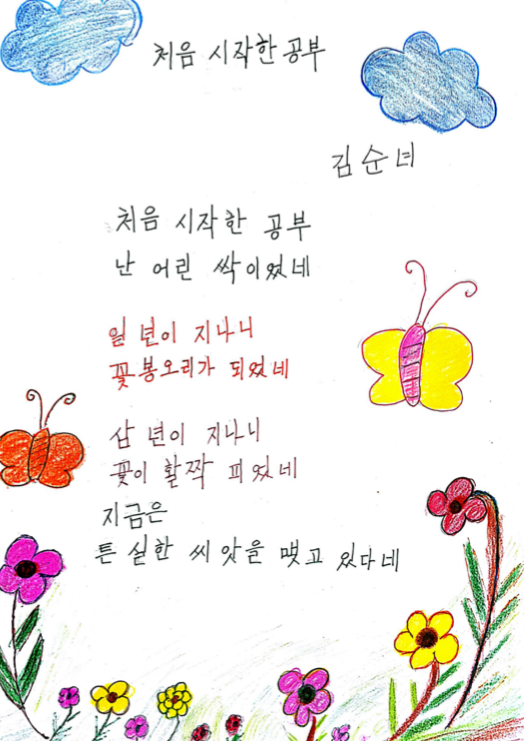 처음 시작한 공부
김순녀
처음 시작한 공부
난 어린 싹이었네
일 년이 지나니
꽃봉오리가 되었네
삼 년이 지나니
꽃이 활짝 피었네
지금은
튼실한 씨앗을 맺고 있다네